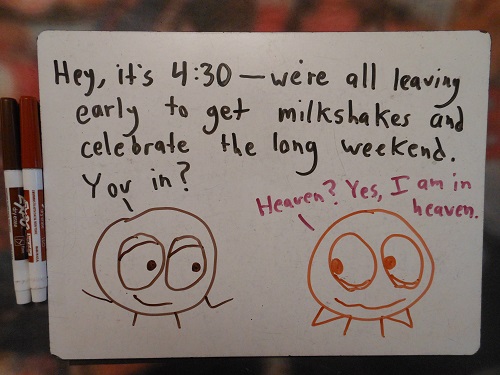 Hey, it's 4:30 — we're all leaving
early to get milkshakes and
celebrate the long weekend.
You in?
Heaven? Yes, I am in
heaven.
EXPO